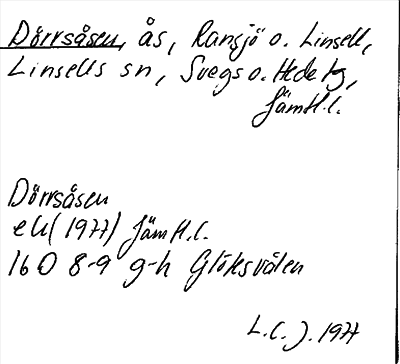 Dörrsåsen, ås, Ransjö o. Linsell,
Linsells sn, Svegs o. Hede tg,
Jämtl.l.
Dörrsåsen
ek (1977) Jämtl.l.
16D 8-9 g-h Glöksvålen
L.C.J. 1977